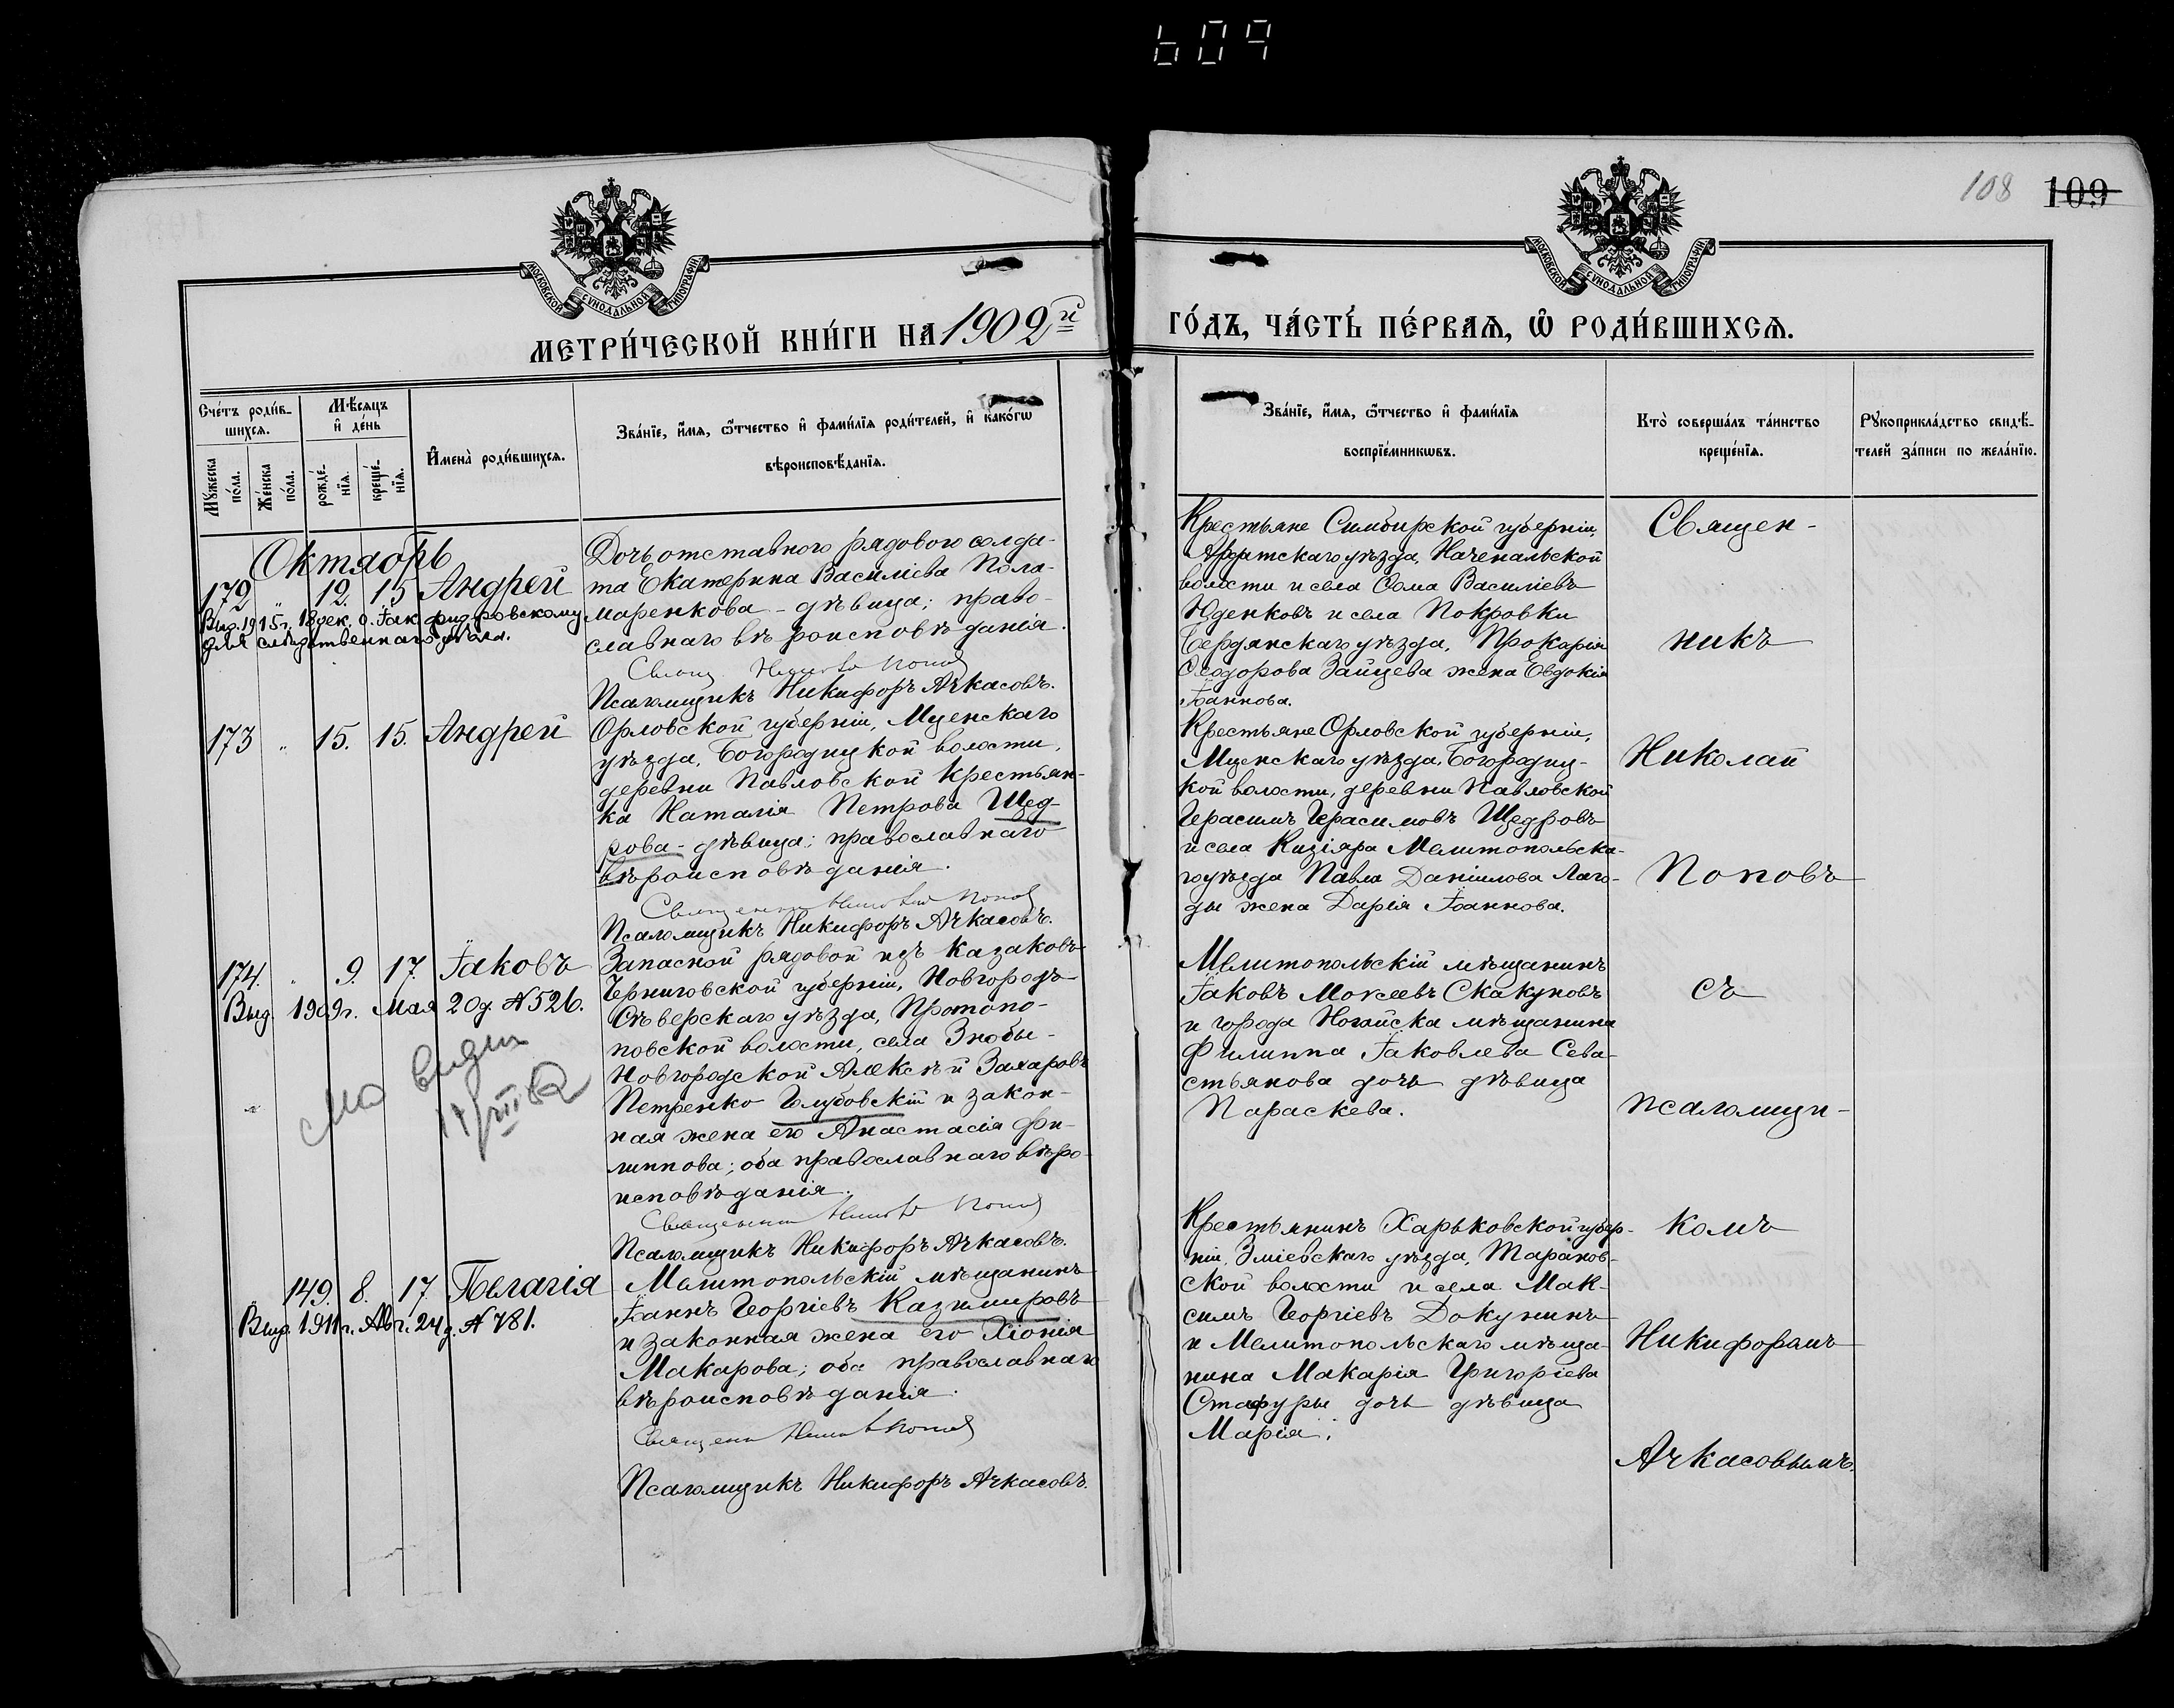 609
108 109
МОСКОВСКОЙ СѴНОДАЛЬНОЙ ТИПОГРАФІИ
МОСКОВСКОЙ СѴНОДАЛЬНОЙ ТИПОГРАФІИ
МЕТРИ́ЧЕСКОЙ КНИ́ГИ НА 1902й
ГО́ДЪ, ЧА́СТЬ ПЕ́РВАѦ, Ѡ҆ РОДИ́ВШИХСѦ.
Сче́тъ роди́в-
шихсѧ.
Мѣ́сѧцъ
и҆ де́нь
Мꙋ́жеска
по́ла.
Же́нска
по́ла.
рожде́-
нїѧ.
креще́-
нїѧ.
И҆мена̀ роди́вшихсѧ.
Зва́нїе, и҆́мѧ, ѻ҆́тчество и҆ фами́лїѧ роди́телей, и҆ како́гѡ
вѣроисповѣ́данїѧ.
Зва́нїе, и҆́мѧ, ѻ҆́тчество и҆ фами́лїѧ
воспрїе́мникѡвъ.
Кто̀ соверша́лъ та́инство
креще́нїѧ.
Рꙋкоприкла́дство свидѣ́-
телей за́писи по жела́нїю.
Октябрь
172 " 12. 15 Андрей
Выд. 1915 г. 18 дек. о.
для слѣдственнаго дѣла.
Дочь отставного рядового солда-
та Екатерина Василіева Пола-
маренкова - дѣвица; право-
славнаго вѣроисповѣданія.
Псаломщикъ Никифоръ Ачкасовъ.
Крестьяне Симбирской губерніи,
Ардатскаго уѣзда, Наченальской
волости и села Ѳома Василіевъ
Юденковъ и села Покровки
Бердянскаго уѣзда, Прокарія
Ѳеодорова Зайцева жена Евдокія
Іоаннова.
173 " 15. 15. Андрей
Орловской губерніи, Мценскаго
уѣзда, Богородицкой волости,
деревни Павловской крестьян-
ка Наталія Петрова Щед-
рова - дѣвица; православнаго
вѣроисповѣданія.
Псаломщикъ Никифоръ Ачкасовъ.
Крестьяне Орловской губерніи,
Мценскаго уѣзда, Богородиц-
кой волости, деревни Павловской
Герасимъ Герасимовъ Щедровъ
и села Кизіяра Мелитопольска-
го уѣзда Павла Даніилова Лаго-
ды жена Дарія Іоаннова.
174. " 9. 17. Іаковъ
Выд. 1909 г. Мая 20 д. № 526.
Запасной рядовой изъ казаковъ
Черниговской губерніи, Новгородъ-
Сѣверскаго уѣзда, Протопо-
повской волости, села Знобы-
Новгородской Алексѣй Захаровъ
Петренко Голубовскій и закон-
ная жена его Анастасія Фи-
липпова; оба православнаго вѣро-
исповѣданія.
Псаломщикъ Никифоръ Ачкасовъ.
Мелитопольскій мѣщанинъ
Іаковъ Моисеевъ Скакуновъ
и города Ногайска мѣщанина
Филиппа Іаковлева Сева-
стьянова дочь дѣвица
Параскева.
149. 8. 17. Пелагія
Выд. 1911 г. Авг. 24 д. № 781.
Мелитопольскій мѣщанинъ
Іоаннъ Георгіевъ Казимировъ
и законная жена его Хіонія
Макарова; оба православнаго
вѣроисповѣданія.
Псаломщикъ Никифоръ Ачкасовъ.
Крестьянинъ Харьковской губер-
ніи, Зміевскаго уѣзда, Таранов-
ской волости и села Мак-
симъ Георгіевъ Докунинъ
и Мелитопольскаго мѣща-
нина Макарія Григоріева
Стафуры дочь дѣвица
Марія.
Священ-
никъ
Николай
Поповъ
съ
псаломщи-
комъ
Никифоромъ
Ачкасовымъ.